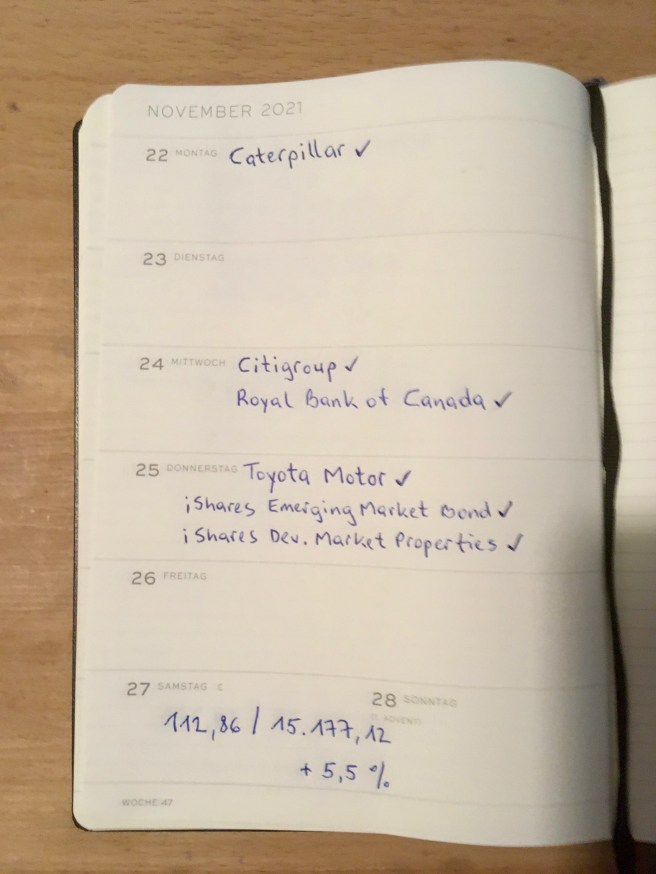 NOVEMBER 2021
22 MONTAG Caterpillar ✓
23 DIENSTAG
24 MITTWOCH Citigroup ✓
Royal Bank of Canada ✓
25 DONNERSTAG Toyota Motor ✓
iShares Emerging Market Bond ✓
iShares Dev. Market Properties ✓
26 FREITAG
27 SAMSTAG ☾
28 SONNTAG
(1. ADVENT)
112,86 / 15.177,12
+ 5,5 %
WOCHE 47